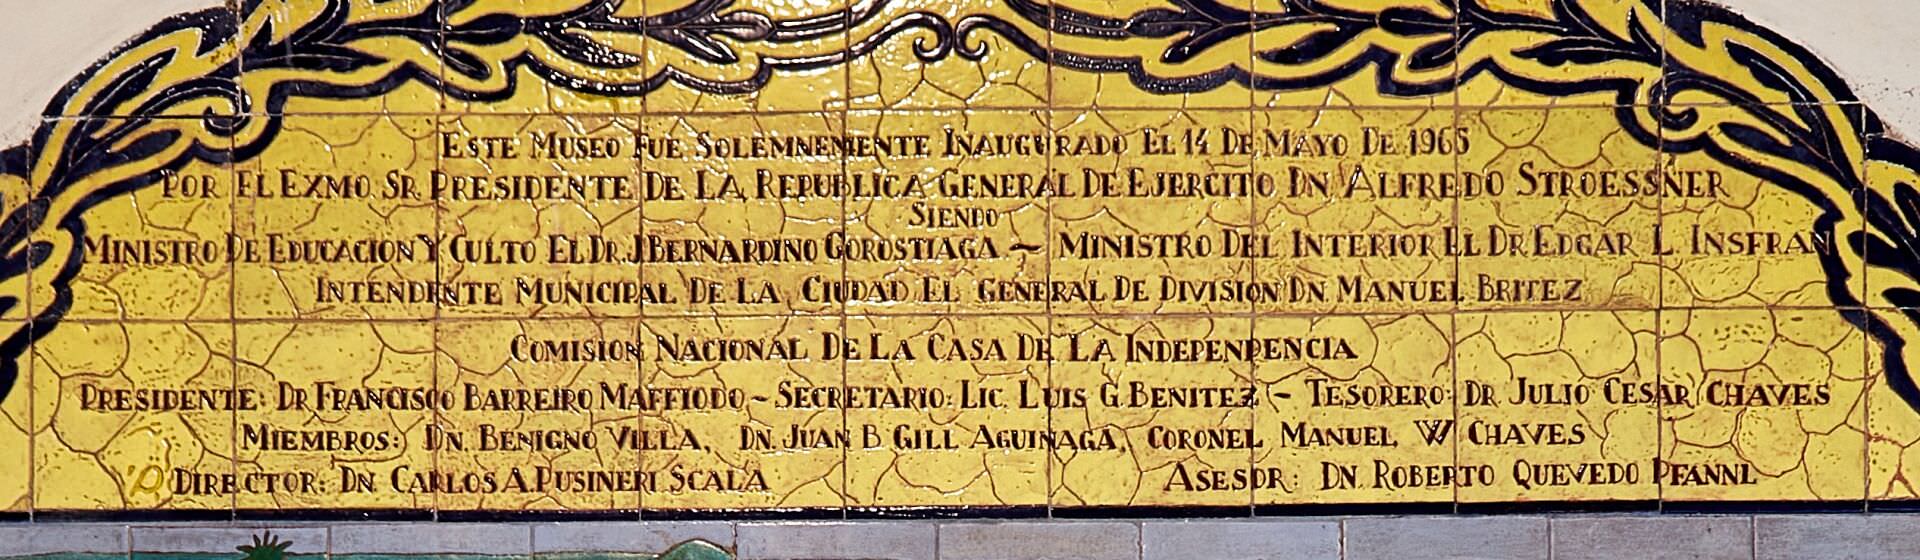 ESTE MUSEO FUE SOLEMNEMENTE INAUGURADO EL 14 DE MAYO DE 1965
POR EL EXMO. SR. PRESIDENTE DE LA REPUBLICA GENERAL DE EJERCITO DN ALFREDO STROESSNER
SIENDO
MINISTRO DE EDUCACION Y CULTO EL DR. J. BERNARDINO GOROSTIAGA. ~ MINISTRO DEL INTERIOR EL DR EDGAR L. INSFRAN
INTENDENTE MUNICIPAL DE LA CIUDAD EL GENERAL DE DIVISION DN MANUEL BRITEZ
COMISION NACIONAL DE LA CASA DE LA INDEPENDENCIA
PRESIDENTE: DR FRANCISCO BARREIRO MAFFIODO ~ SECRETARIO: LIC. LUIS G. BENITEZ ~ TESORERO: DR JULIO CESAR CHAVES
MIEMBROS: DN. BENIGNO VILLA, DN. JUAN B GILL AGUINAGA, CORONEL MANUEL W CHAVES
DIRECTOR: DN CARLOS A. PUSINERI SCALA ASESOR: DN. ROBERTO QUEVEDO PFANNL